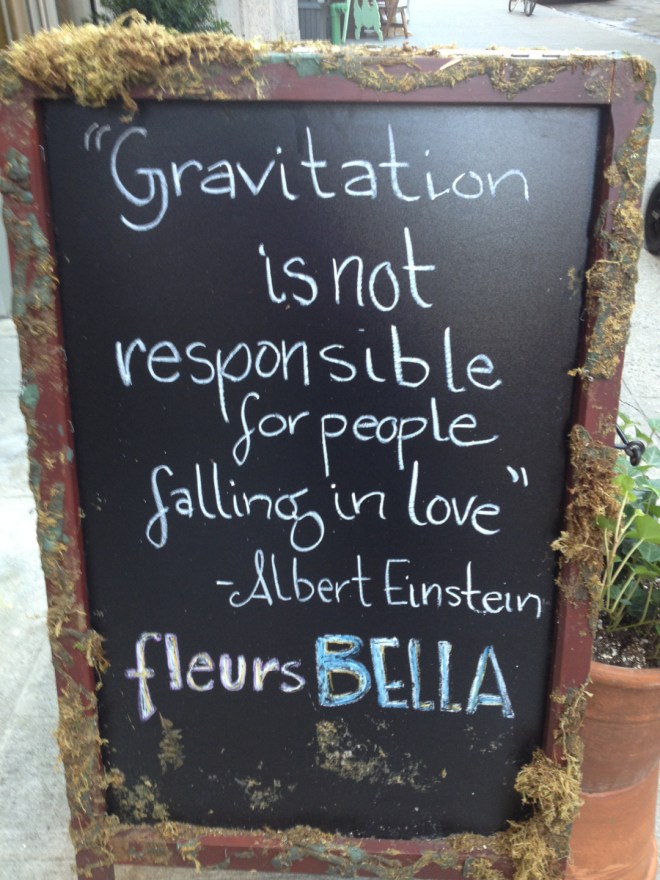 "Gravitation
is not
responsible
for people
falling in love"
-Albert Einstein
fleurs BELLA